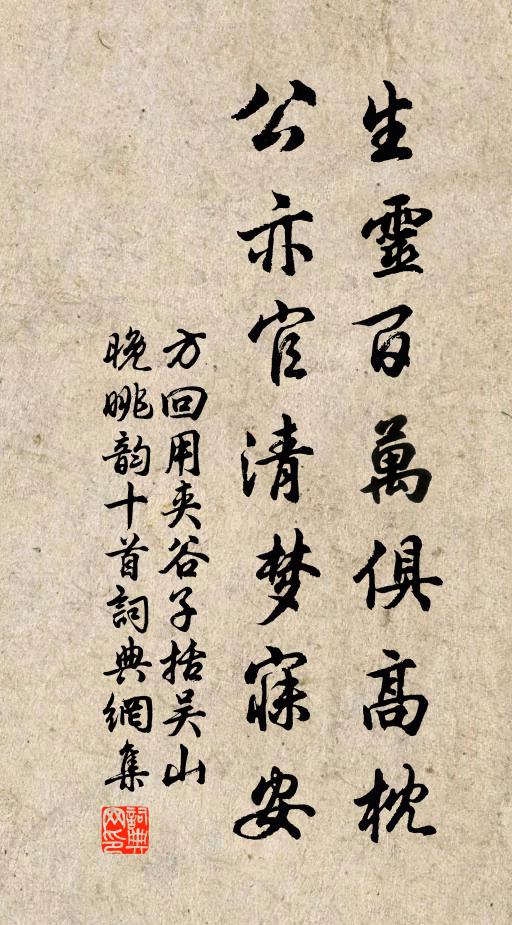 生靈百萬俱高枕
公亦官清梦寐安
方回用夾谷子括吴山
晚眺韵十首詞典網集
詞典网印